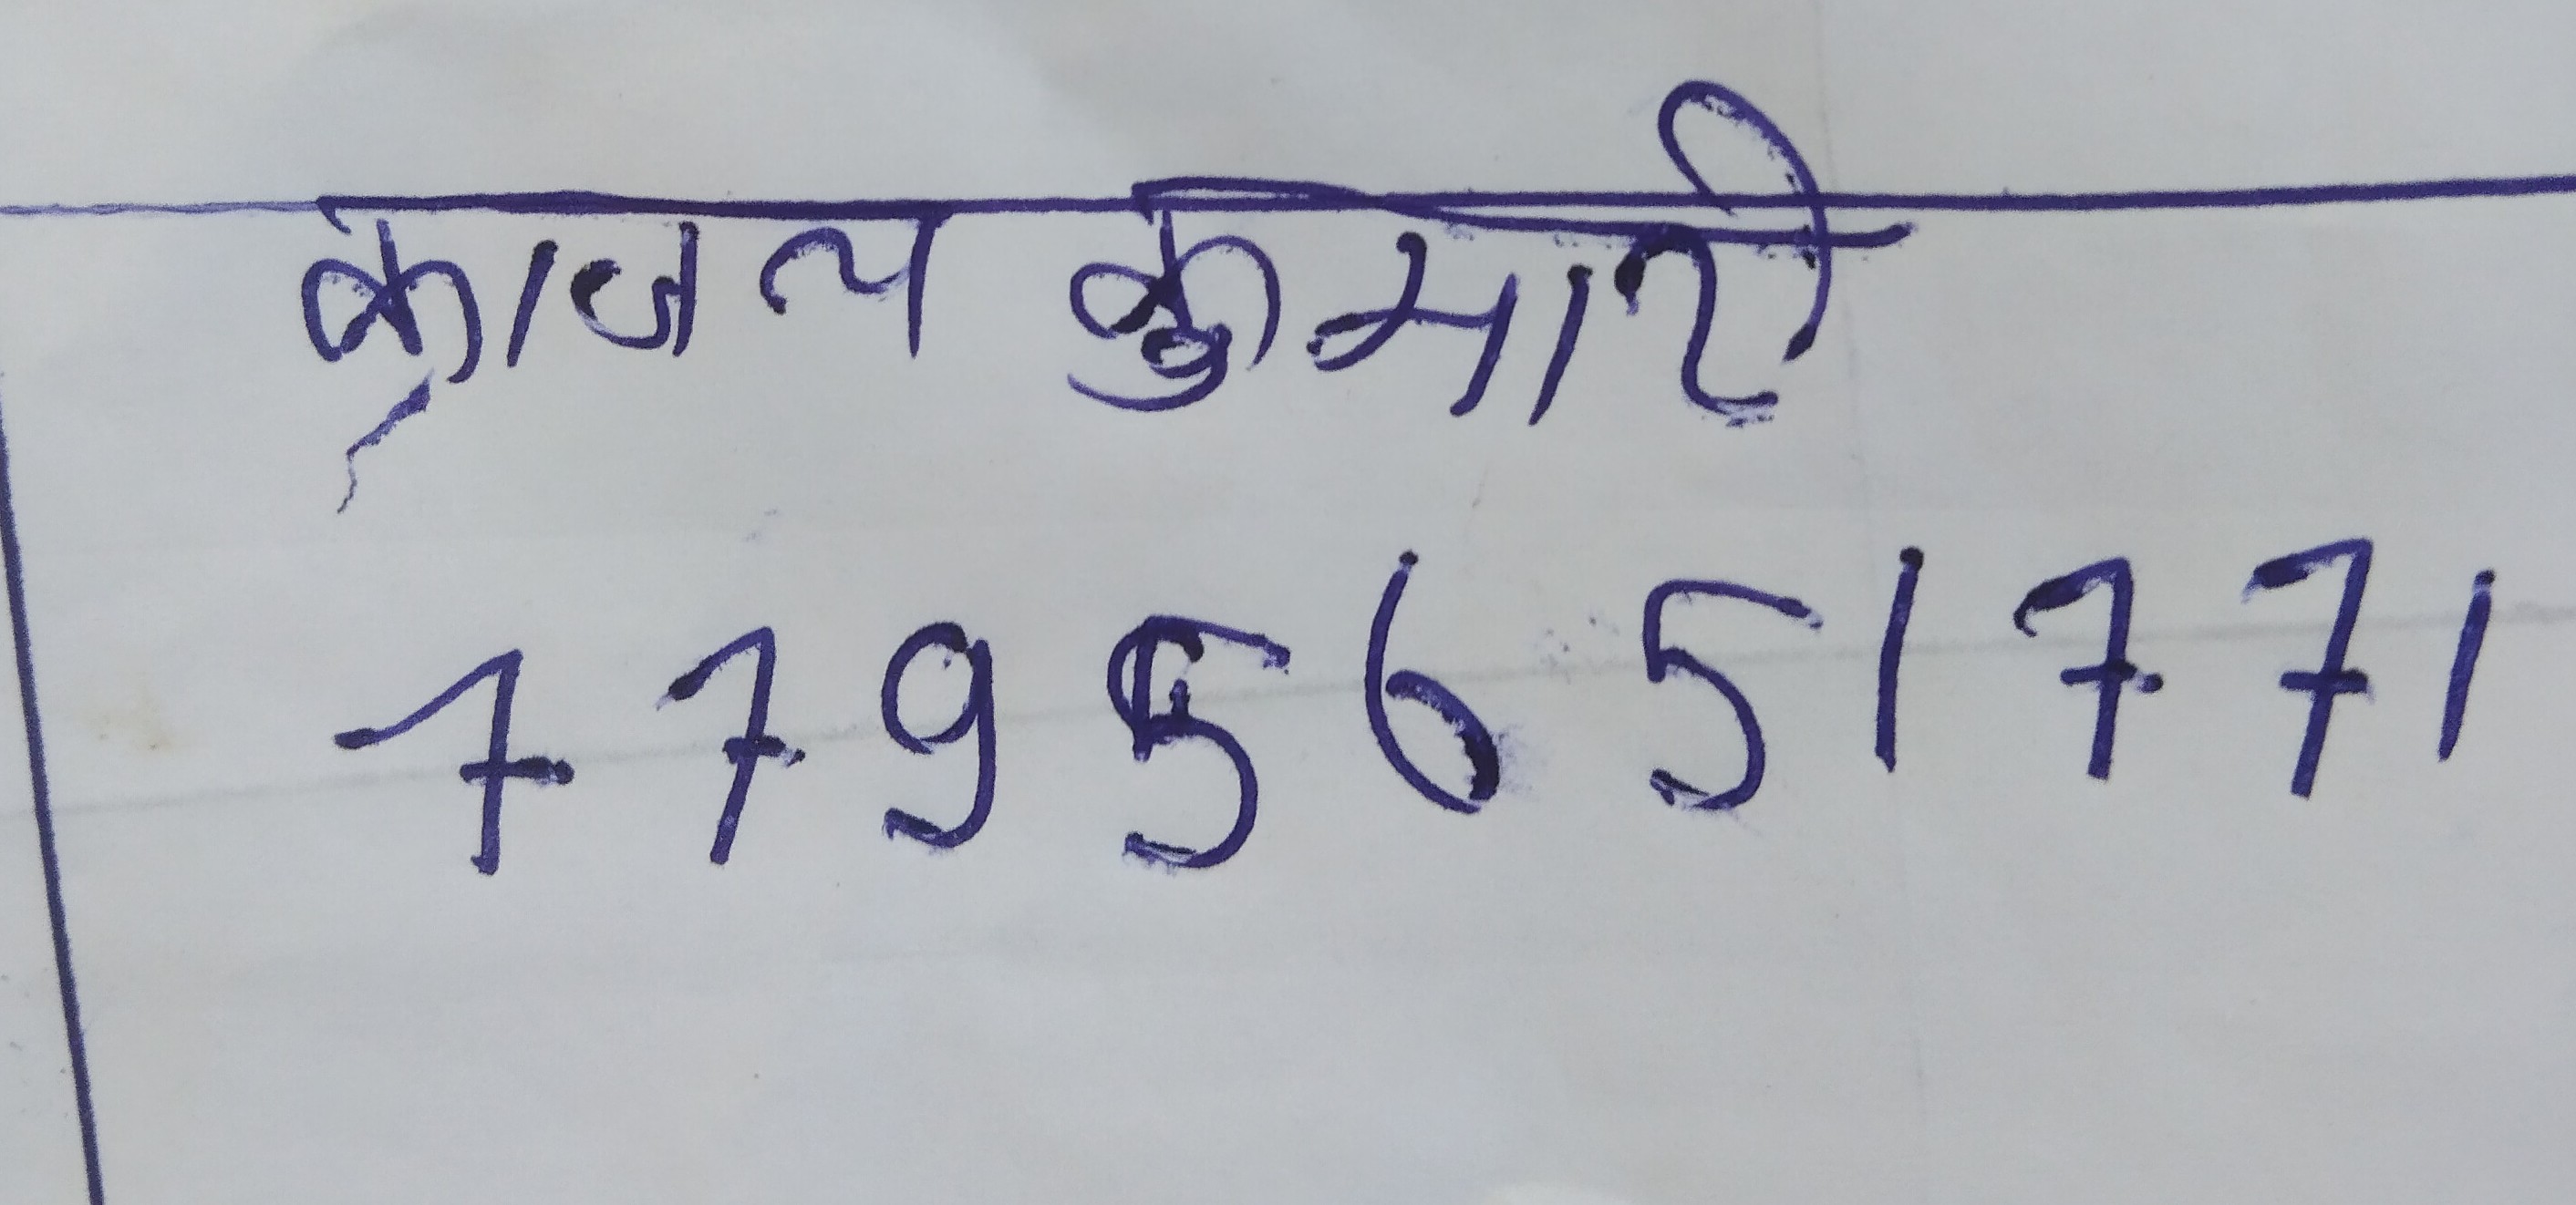 काजल कुमारी
7795651771